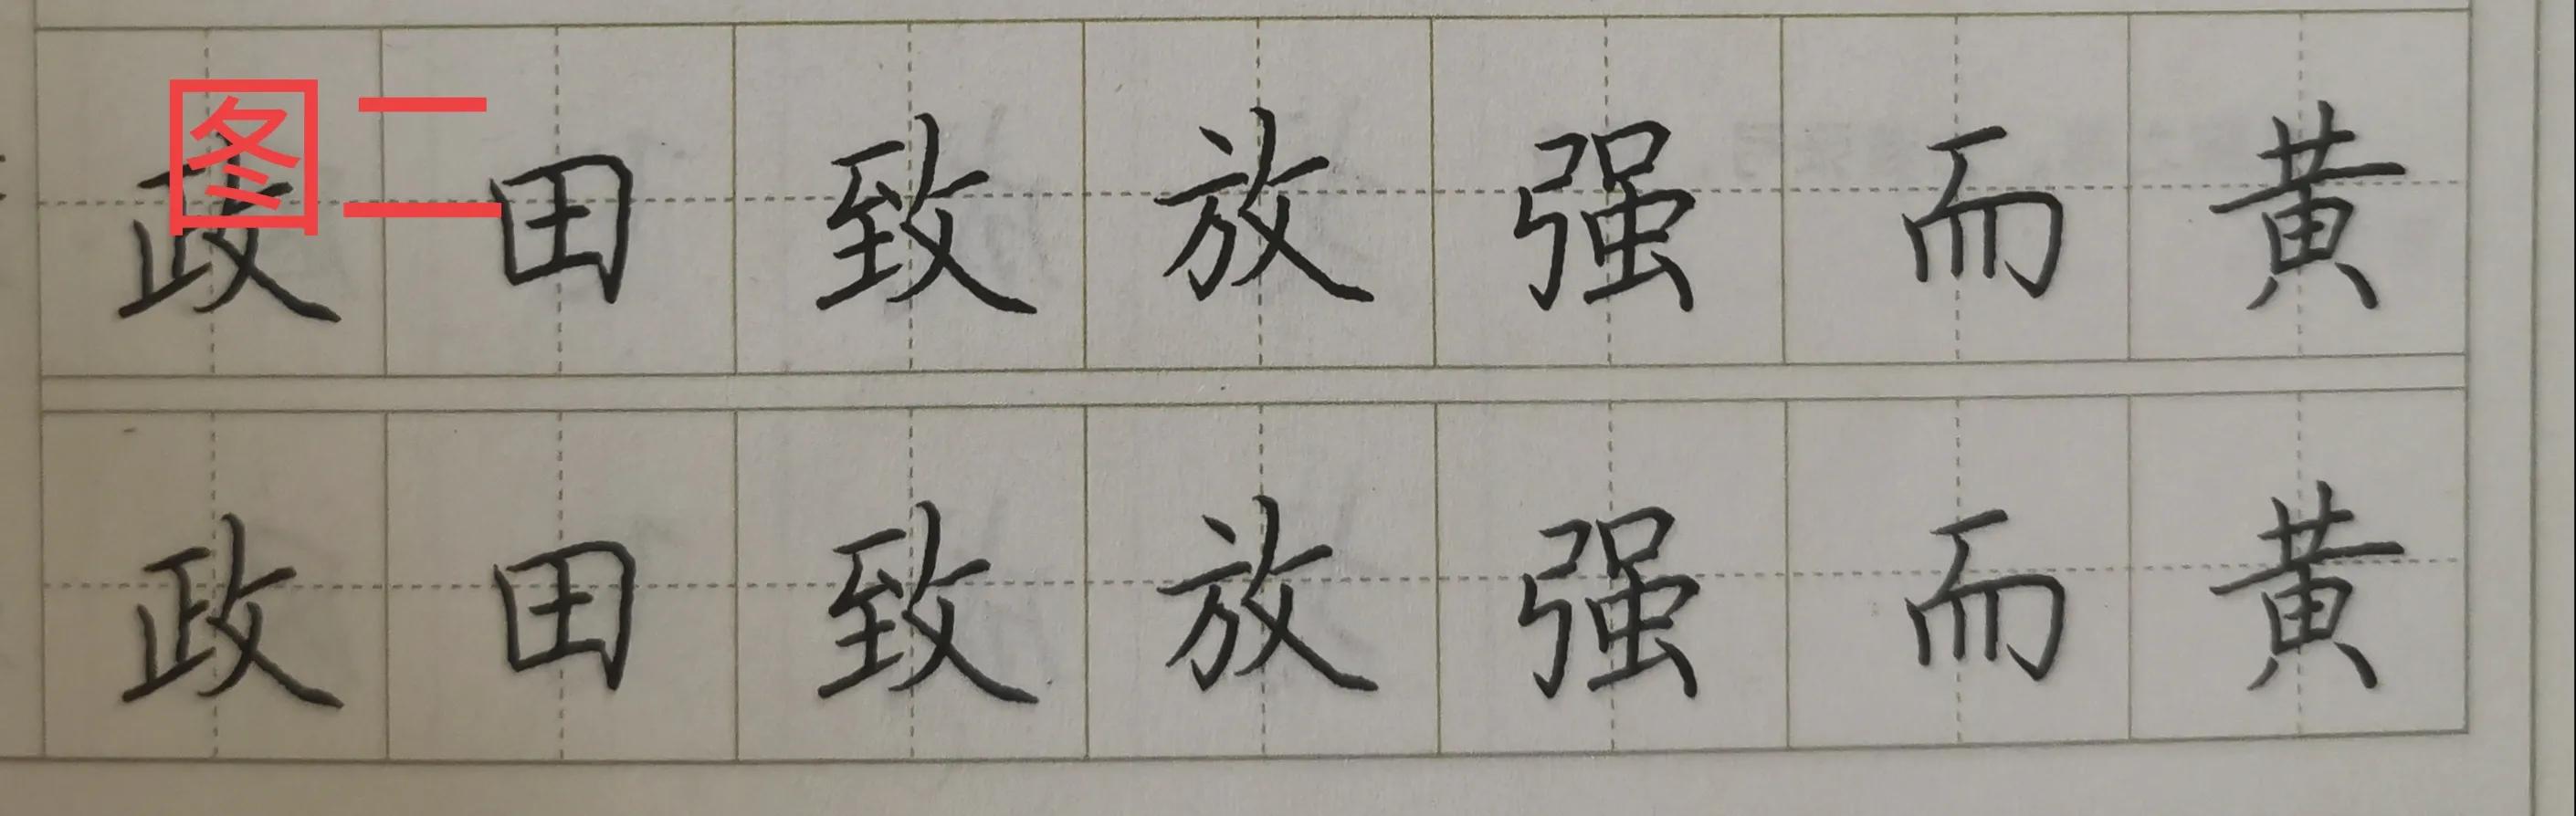 图二
政田致放强而黄
政田致放强而黄